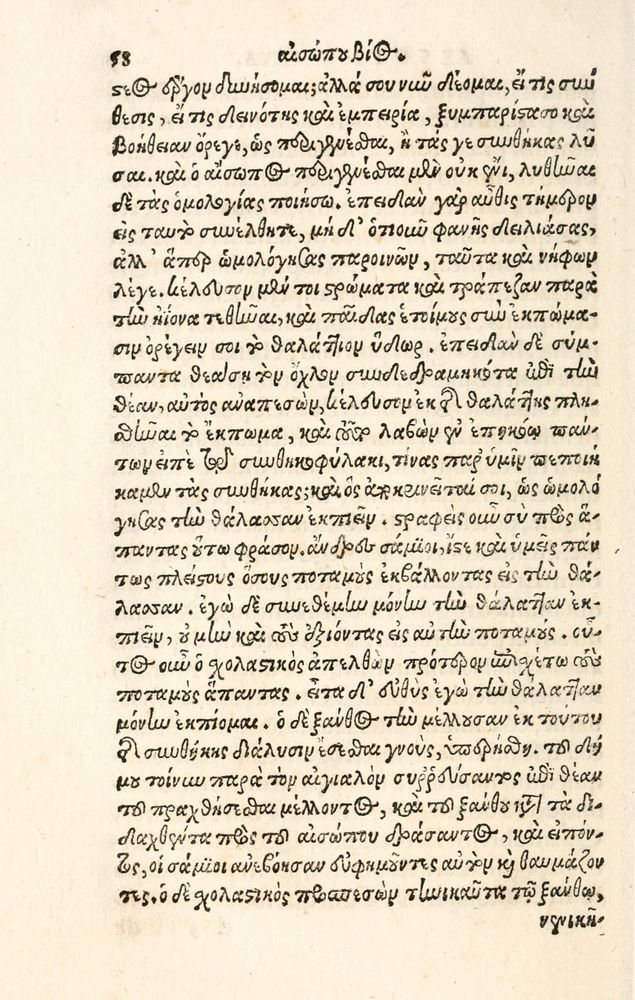 58 αἰσώπου βίος.
στος ἔργον δυνήσομαι; ἀλλά σου νῦν δέομαι, εἴ τις σύν
θεσις, εἴ τις δεινότης καὶ ἐμπειρία, ξυμπαρίστασο καὶ
βοήθειαν ὄρεγε, ὡς περιγενέσθαι, ἢ τάς γε συνθήκας λῦ
σαι. καὶ ὁ αἴσωπος περιγενέσθαι μὲν οὐκ ἔνι, λυθῆναι
δὲ τὰς ὁμολογίας ποιήσω. ἐπειδὰν γὰρ αὖθις τήμερον
εἰς ταυτὸ συνέλθητε, μὴ δ' ὁπιοῦν φανῇς δειλιάσας,
ἀλλ' ἅπερ ὡμολόγησας παροινῶν, ταῦτα καὶ νήφων
λέγε. κέλευσον μέν τοι στρώματα καὶ τράπεζαν παρὰ
τὴν ἠϊόνα τεθῆναι, καὶ παῖδας ἑτοίμους σὺν ἐκπώμα-
σιν ὀρέγειν σοι τὸ θαλάττιον ὕδωρ. ἐπειδὰν δὲ σύμ-
παντα θεάσῃ τὸν ὄχλον συνδεδραμηκότα ἐπὶ τὴν
θέαν, αὐτὸς ἀναπεσὼν, κέλευσον ἐκ τῆς θαλάττης πλη-
σθῆναι τὸ ἔκπωμα, καὶ τοῦτο λαβὼν ἐν ἐπηκόῳ πάν-
των εἰπὲ τῷ συνθηκοφύλακι, τίνας παρ' ὑμῖν πεποίη
κα μὲν τὰς συνθήκας; καὶ ὃς ἀποκρινεῖταί σοι, ὡς ὡμολό
γησας τὴν θάλασσαν ἐκπιεῖν. στραφεὶς οὖν σὺ πρὸς ἅ-
παντας οὕτω φράσον. ἄνδρες σάμιοι, ἴστε καὶ ὑμεῖς πάν
τως πλείστους ὅσους ποταμοὺς ἐκβάλλοντας εἰς τὴν θά-
λασσαν. ἐγὼ δὲ συνεθέμην μόνην τὴν θάλατταν ἐκ-
πιεῖν, οὐ μὴν καὶ τοὺς ἐξιόντας εἰς αὐτὴν ποταμούς. οὗ-
τος οὖν ὁ σχολαστικὸς ἀπελθὼν πρότερον ἐπισχέτω τοὺς
ποταμοὺς ἅπαντας. εἶτα δ' εὐθὺς ἐγὼ τὴν θάλατταν
μόνην ἐκπίομαι. ὁ δὲ ξάνθος τὴν μέλλουσαν ἐκ τούτου
τῆς συνθήκης διάλυσιν ἔσεσθαι γνοὺς, ὑπερήσθη. τοῦ δή
μου τοίνυν παρὰ τὸν αἰγιαλὸν συρρεύσαντος ἐπὶ θέαν
τοῦ πραχθήσεσθαι μέλλοντος, καὶ τοῦ ξάνθου κατὰ τὰ δι-
δαχθέντα πρὸς τοῦ αἰσώπου δράσαντος, καὶ εἰπόν-
τος, οἱ σάμιοι ἀνεβόησαν εὐφημοῦντες αὐτὸν καὶ θαυμάζον
τες. ὁ δὲ σχολαστικὸς προσπεσὼν τηνικαῦτα τῷ ξάνθῳ,
νενικῆ-